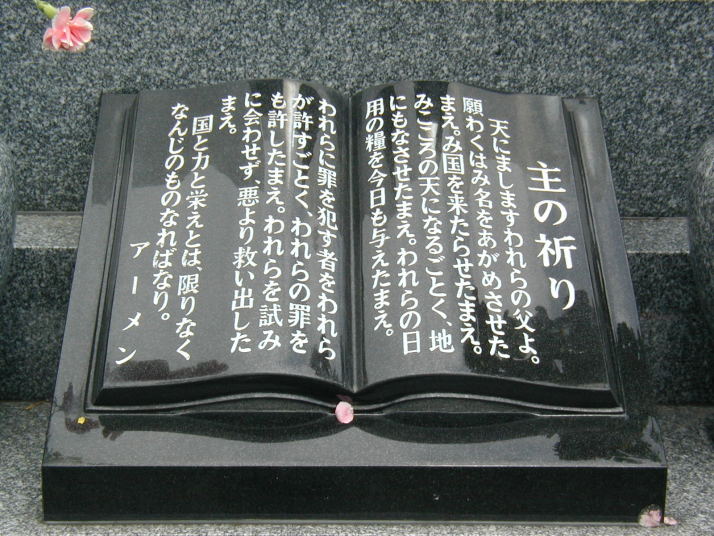 主の祈り
天にましますわれらの父よ。
願わくはみ名をあがめさせた
まえ。み国を来たらせたまえ。
みこころの天になるごとく、地
にもなさせたまえ。われらの日
用の糧を今日も与えたまえ。
われらに罪を犯す者をわれら
が許すごとく、われらの罪を
も許したまえ。われらを試み
に会わせず、悪より救い出した
まえ。
国と力と栄えとは、限りなく
なんじのものなればなり。
アーメン